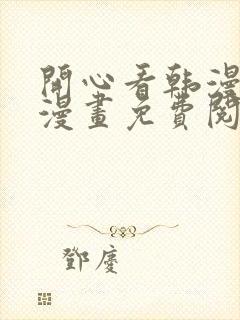 開心看韩漫
漫畫免費閱
鄧慶